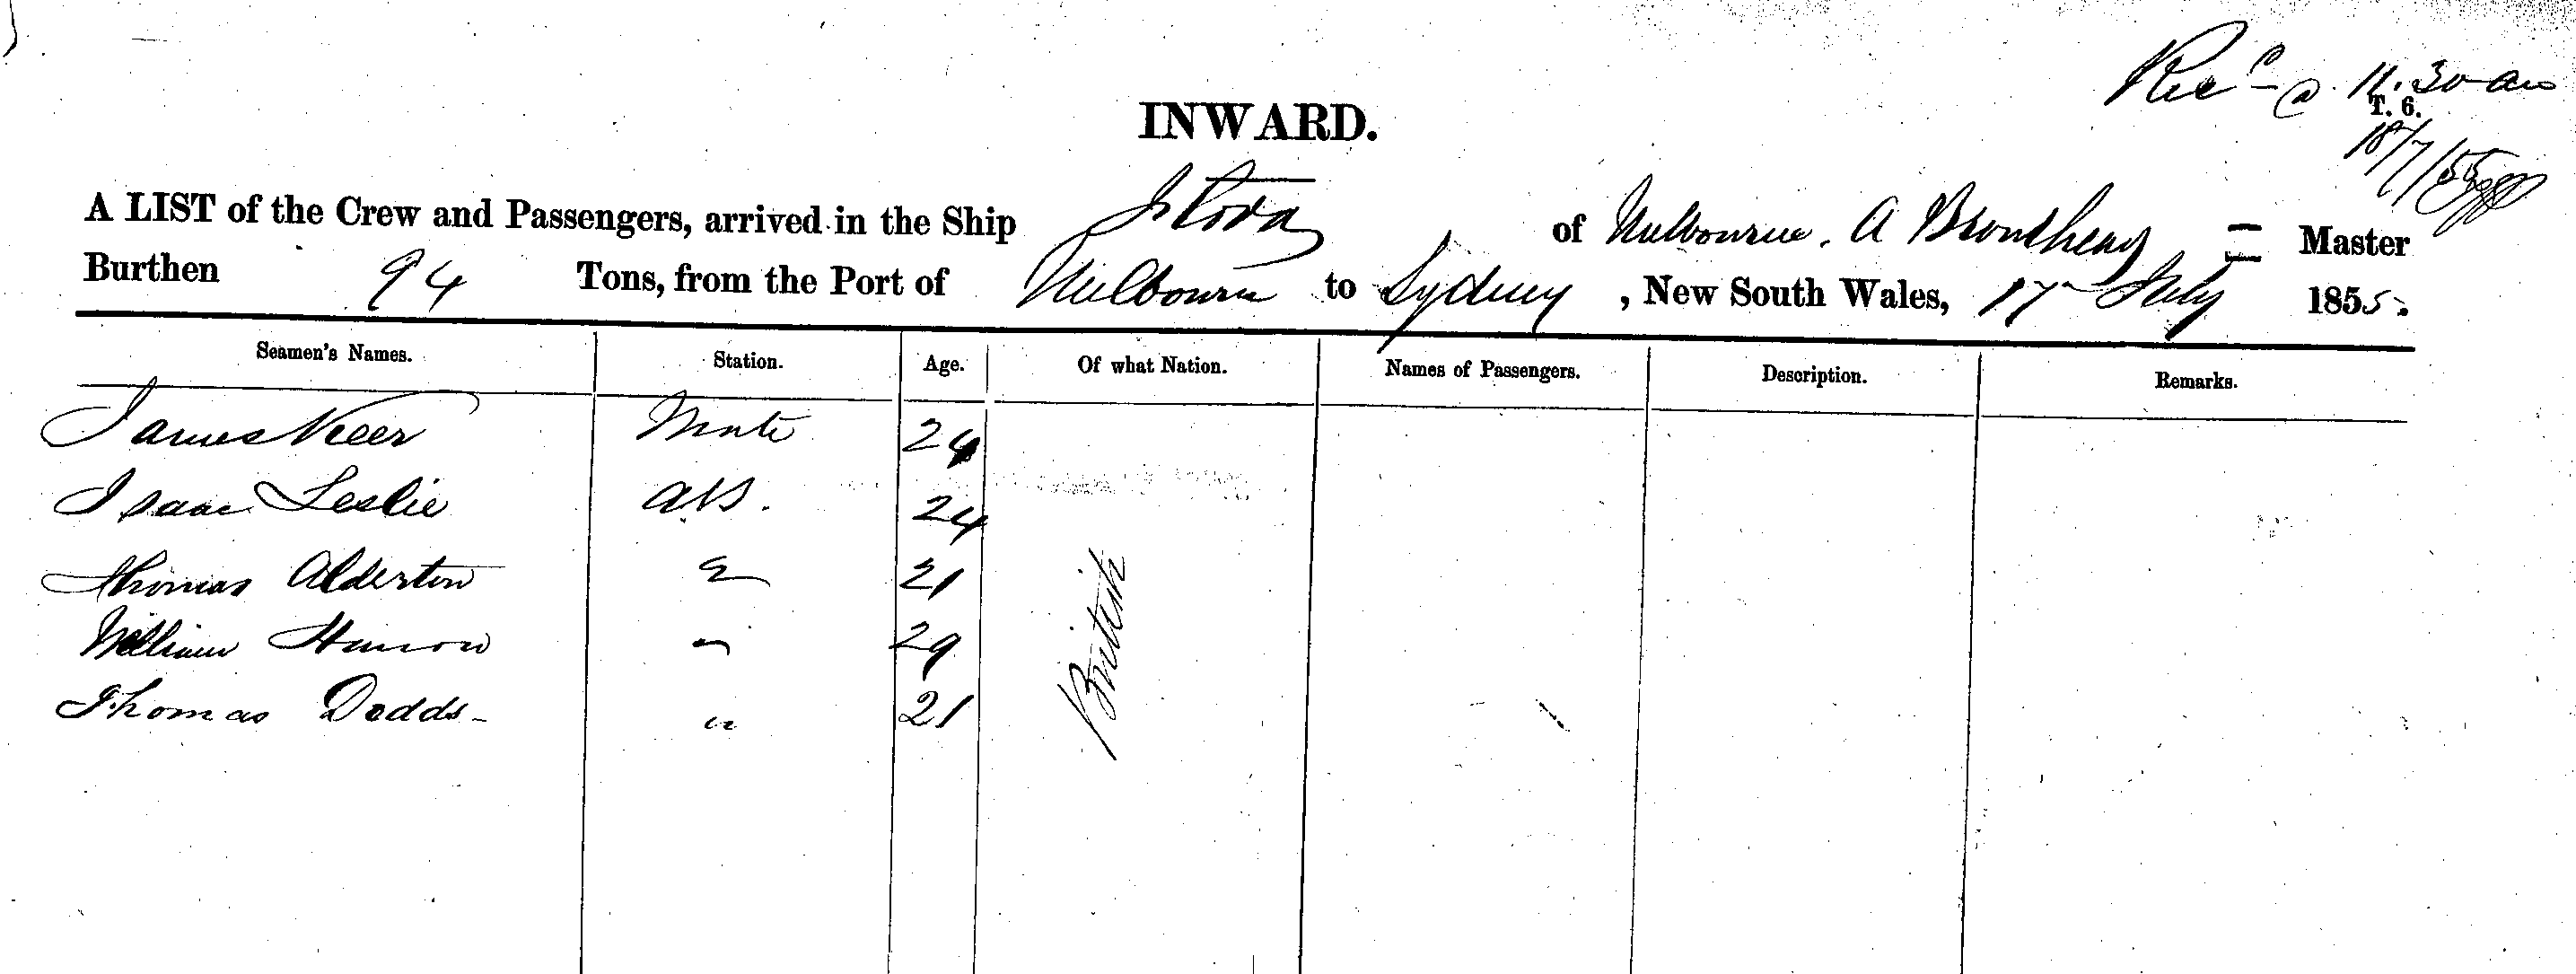 Rec^d @ 11.30 am
INWARD.
T. 6.
18/7/55
A LIST of the Crew and Passengers, arrived in the Ship of Melbourne. A Brodhead Master
Burthen 94 Tons, from the Port of Melbourne to Sydney, New South Wales, 17 July 1855.
Seamen's Names. Station. Age. Of what Nation. Names of Passengers. Description. Remarks.
James Mate 24
Isaac Leslie AB. 24
Thomas Alderton " 21
William " 29
Thomas Dodds - " 21
British